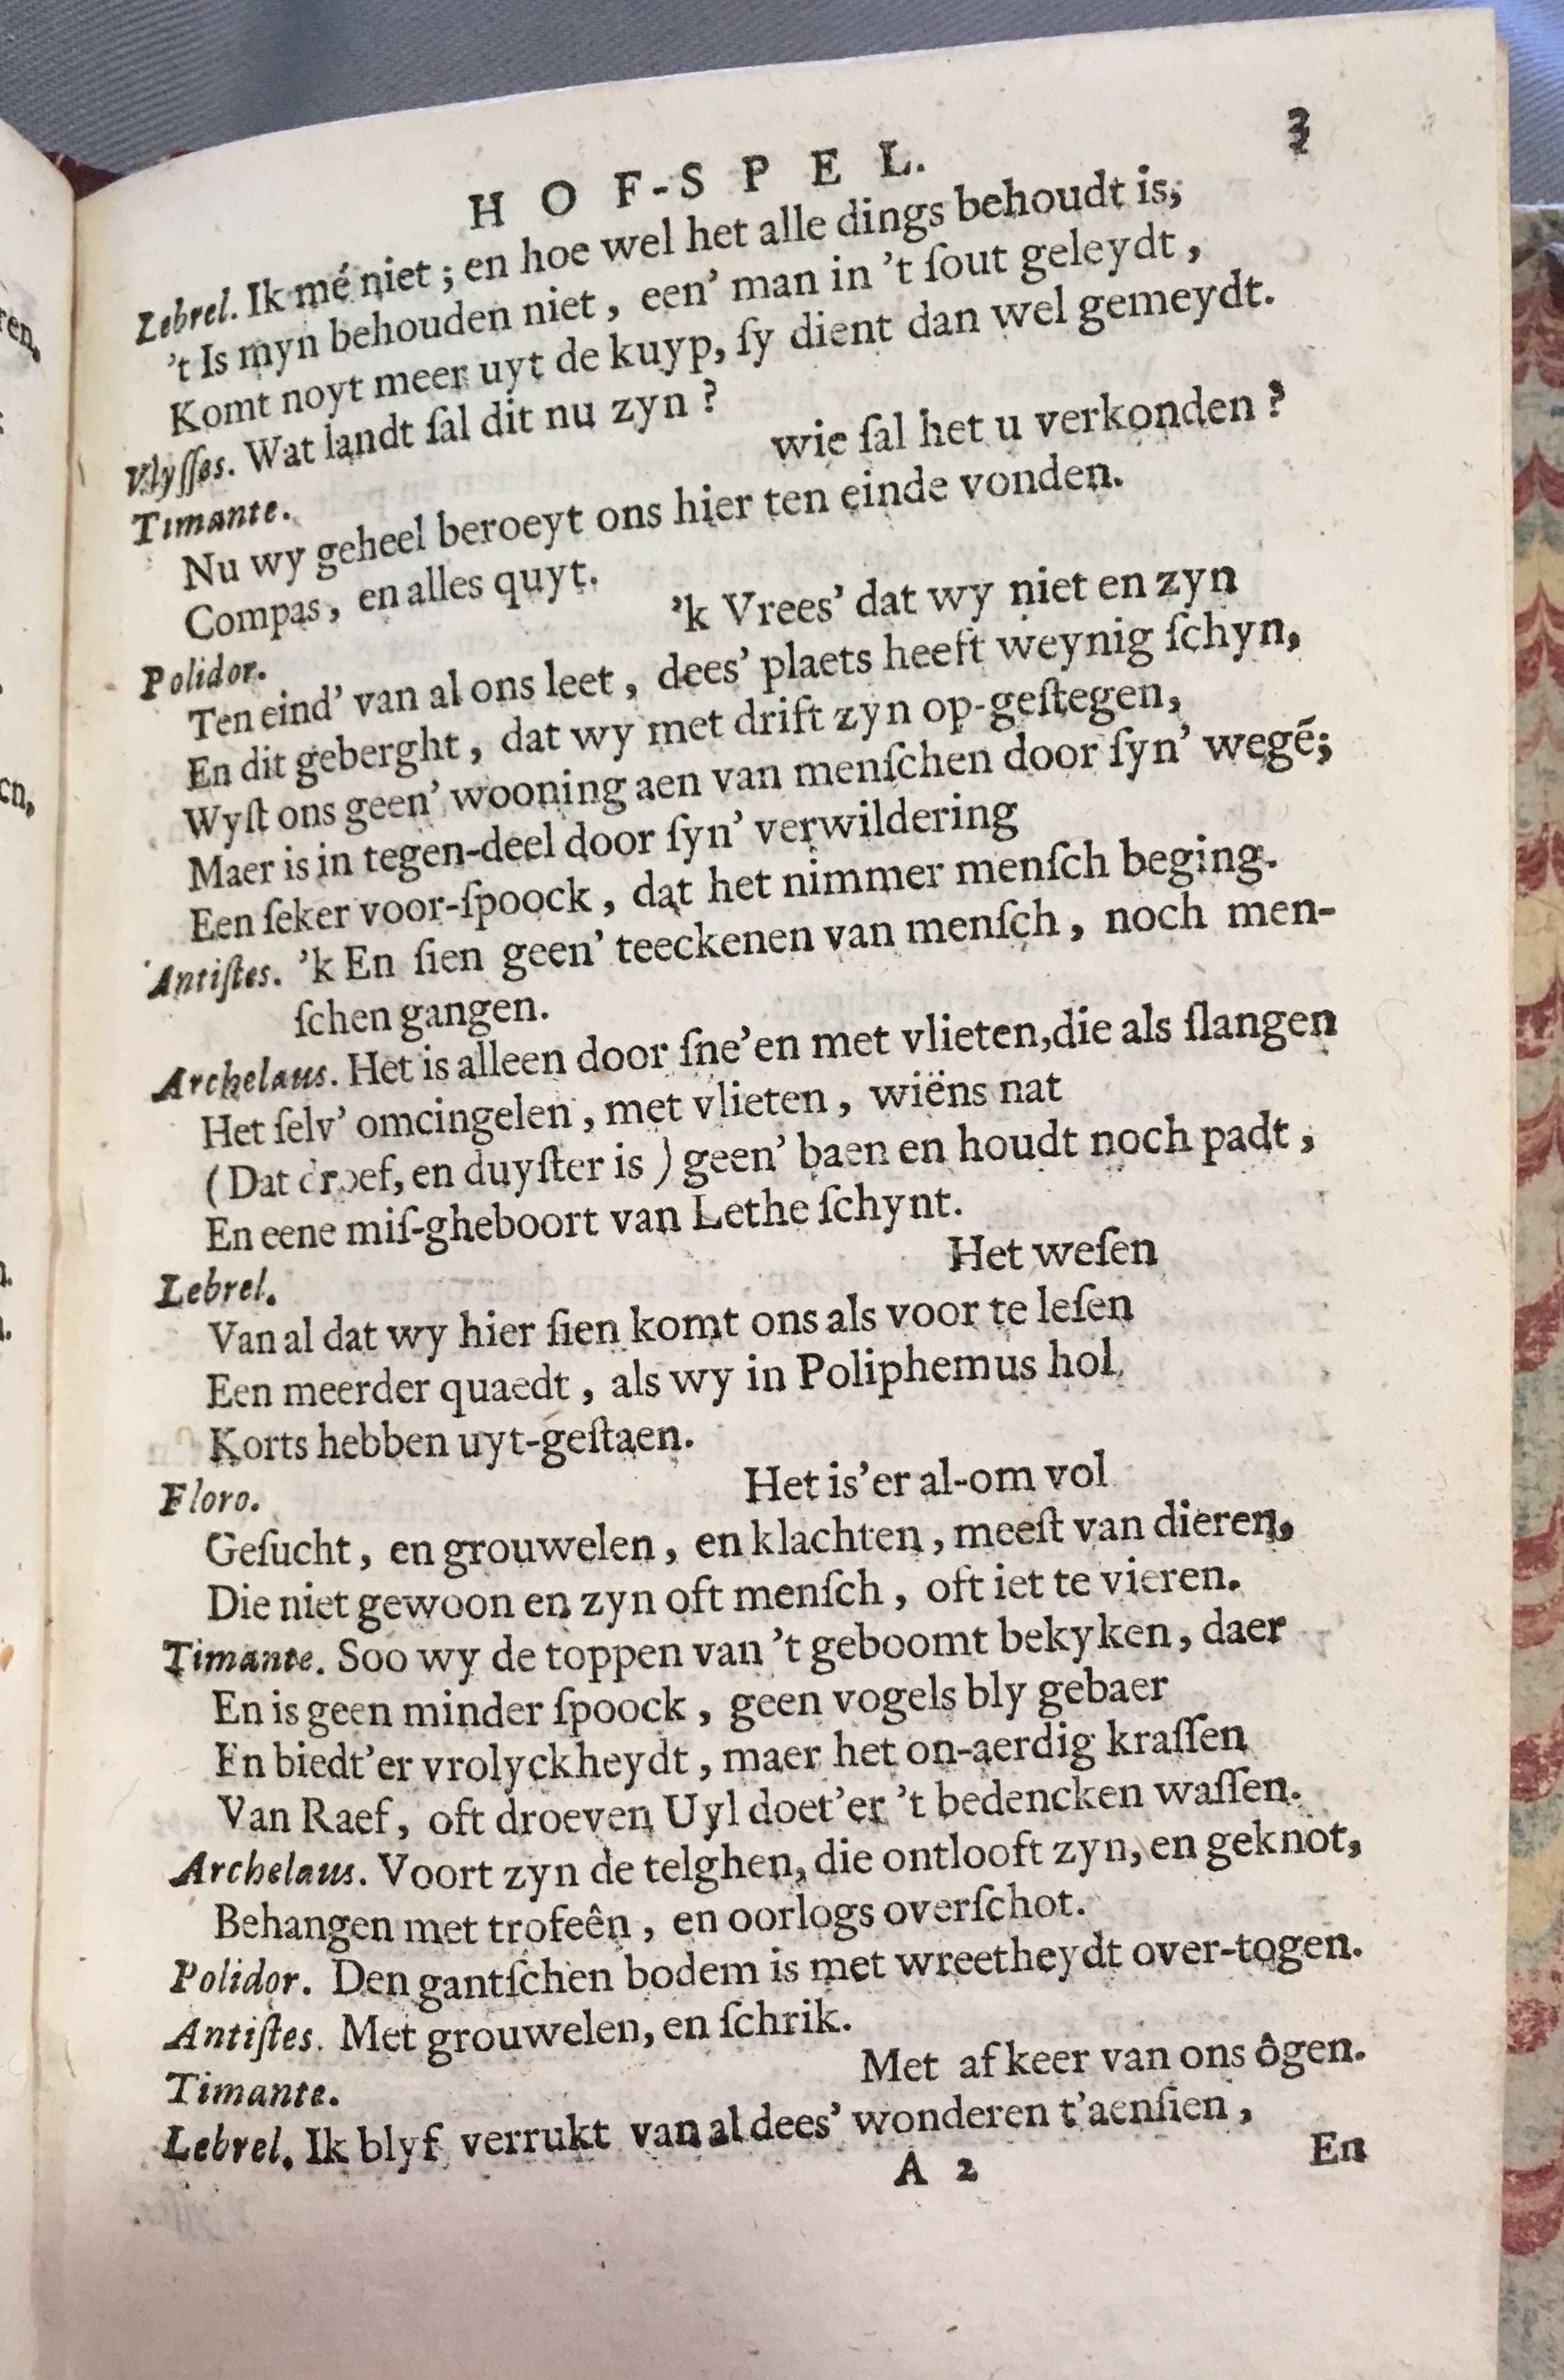 HOF-SPEL. 3
Lebrel. Ik mé niet ; en hoe wel het alle dings behoudt is,
't Is myn behouden niet, een' man in 't ſout geleydt,
Komt noyt meer uyt de kuyp, ſy dient dan wel gemeydt.
Vlyſſes. Wat landt ſal dit nu zyn ?
Timante. wie ſal het u verkonden ?
Nu wy geheel beroeyt ons hier ten einde vonden.
Compas, en alles quyt.
Polidor. 'k Vrees' dat wy niet en zyn
Ten eind' van al ons leet, dees' plaets heeft weynig ſchyn,
En dit geberght, dat wy met drift zyn op-geſtegen,
Wyſt ons geen' wooning aen van menſchen door ſyn' wegẽ;
Maer is in tegen-deel door ſyn' verwildering
Een ſeker voor-ſpoock, dat het nimmer menſch beging.
Antiſtes. 'k En ſien geen' teeckenen van menſch, noch men-
ſchen gangen.
Archelaus. Het is alleen door ſne'en met vlieten, die als ſlangen
Het ſelv' omcingelen, met vlieten, wiëns nat
(Dat droef, en duyſter is) geen' baen en houdt noch padt,
En eene miſ-gheboort van Lethe ſchynt.
Lebrel. Het weſen
Van al dat wy hier ſien komt ons als voor te leſen
Een meerder quaedt, als wy in Poliphemus hol
Korts hebben uyt-geſtaen.
Floro. Het is'er al-om vol
Geſucht, en grouwelen, en klachten, meeſt van dieren,
Die niet gewoon en zyn oft menſch, oft iet te vieren.
Timante. Soo wy de toppen van 't geboomt bekyken, daer
En is geen minder ſpoock, geen vogels bly gebaer
En biedt'er vrolyckheydt, maer het on-aerdig kraſſen
Van Raef, oft droeven Uyl doet'er 't bedencken waſſen.
Archelaus. Voort zyn de telghen, die ontlooft zyn, en geknot,
Behangen met trofeên, en oorlogs overſchot.
Polidor. Den gantſchen bodem is met wreetheydt over-togen.
Antiſtes. Met grouwelen, en ſchrik.
Timante. Met afkeer van ons ôgen.
Lebrel. Ik blyf verrukt van al dees' wonderen t'aenſien,
A 2 En